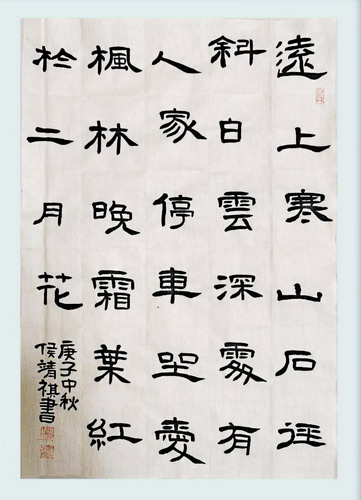 遠上寒山石徑
斜白雲深處有
人家停車坐愛
楓林晚霜葉紅
於二月花
庚子中秋
侯靖祺書